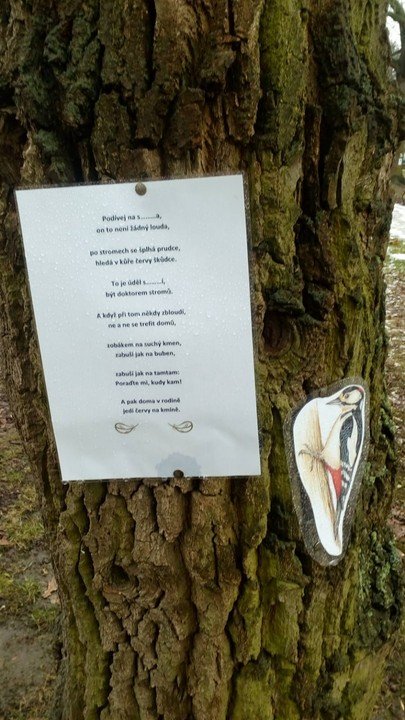 Podívej na s........a,
on to není žádný louda,
po stromech se šplhá prudce,
hledá v kůře červy škůdce.
To je úděl s........í,
být doktorem stromů.
A když při tom někdy zbloudí,
ne a ne se trefit domů,
zobákem na suchý kmen,
zabuší jak na buben,
zabuší jak na tamtam:
Poraďte mi, kudy kam!
A pak doma v rodině
jedí červy na kmíně.